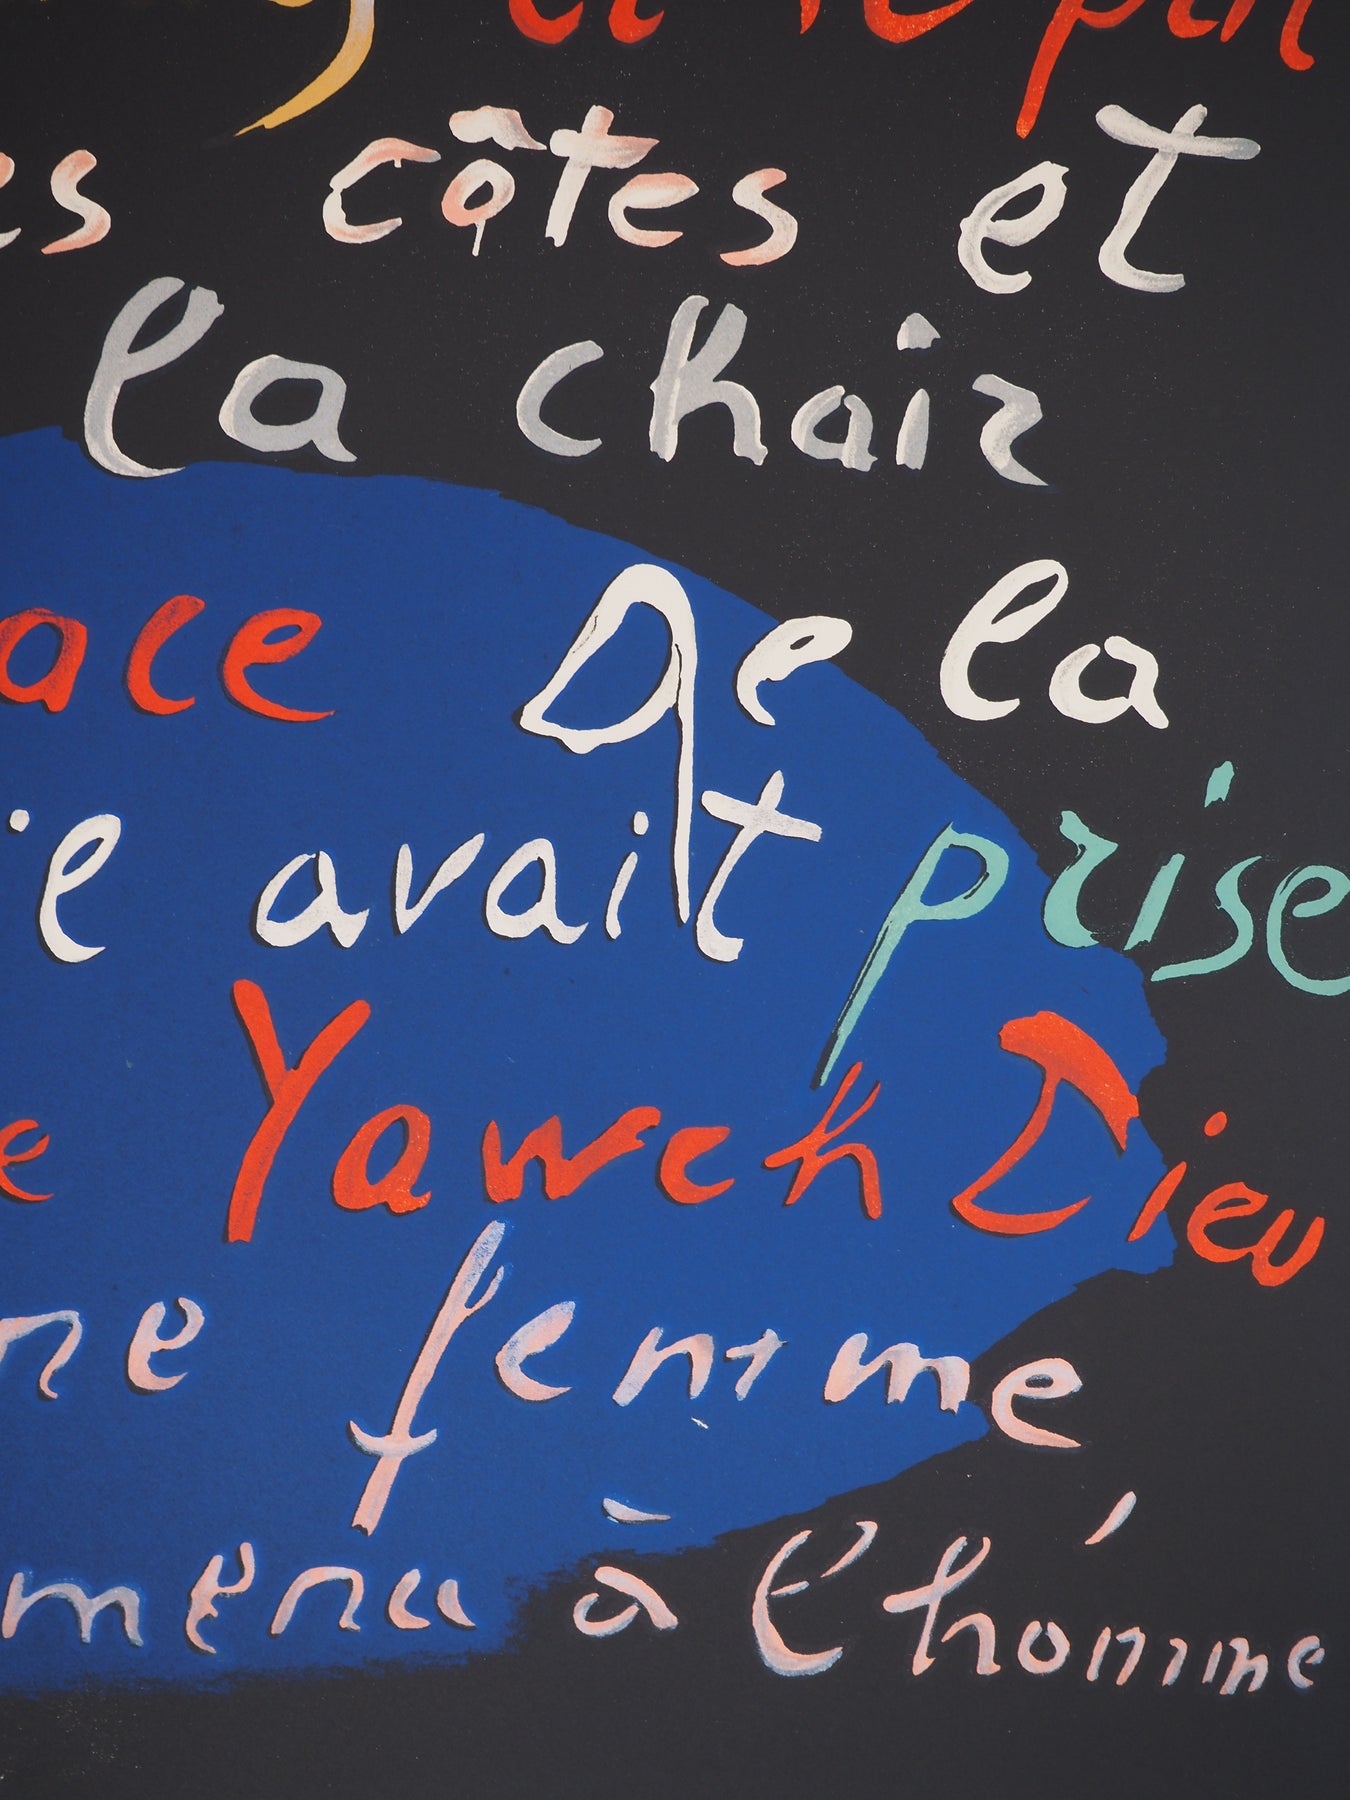 et il prit
es côtes et
la chair
ace De la
ie avait prise
e Yaweh Dieu
ne femme
mena à l'homme